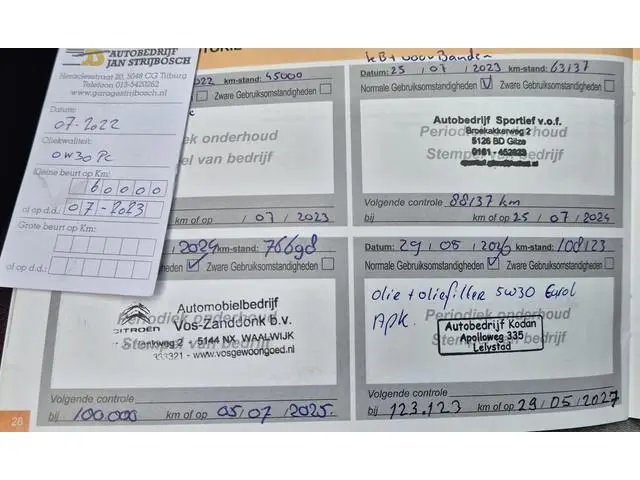 AUTOBEDRIJF
JAN STRIJBOSCH
Heraclesstraat 20, 5048 CG Tilburg
Telefoon 013-5420262
www.garagestrijbosch.nl
Datum:
07-2022
Oliekwaliteit:
0W30 PC
Kleine beurt op Km:
60000
of op d.d.: 07-2023
Grote beurt op Km:
of op d.d.:
2022 km-stand: 45000
Zware Gebruiksomstandigheden
onderhoud
van bedrijf
km of op / 07 / 2023
kBt voor Banden
Datum: 25 / 07 / 2023 km-stand: 63137
Normale Gebruiksomstandigheden Zware Gebruiksomstandigheden
Autobedrijf Sportief v.o.f.
Periodiek onderhoud
Broekakkerweg 2
5126 BD Gilze
Stempel van bedrijf
Volgende controle 88137 km
bij km of op 25 / 07 / 2024
2024 km-stand: 76698
Zware Gebruiksomstandigheden
Automobielbedrijf
CITROËN Vos-Zanddonk b.v.
Periodiek onderhoud
2 - 5144 NX WAALWIJK
Stempel van bedrijf
333321 - www.vosgewoongoed.nl
Volgende controle
bij 100.000 km of op 05 / 07 / 2025.
Datum: 29 / 05 / 2026 km-stand: 108123
Normale Gebruiksomstandigheden Zware Gebruiksomstandigheden
olie + oliefilter 5W30 Eurol
Periodiek onderhoud
APK.
Autobedrijf Kodan
Apolloweg 335
Lelystad
Stempel van bedrijf
Volgende controle
bij 123.123 km of op 29 / 05 / 2027
28